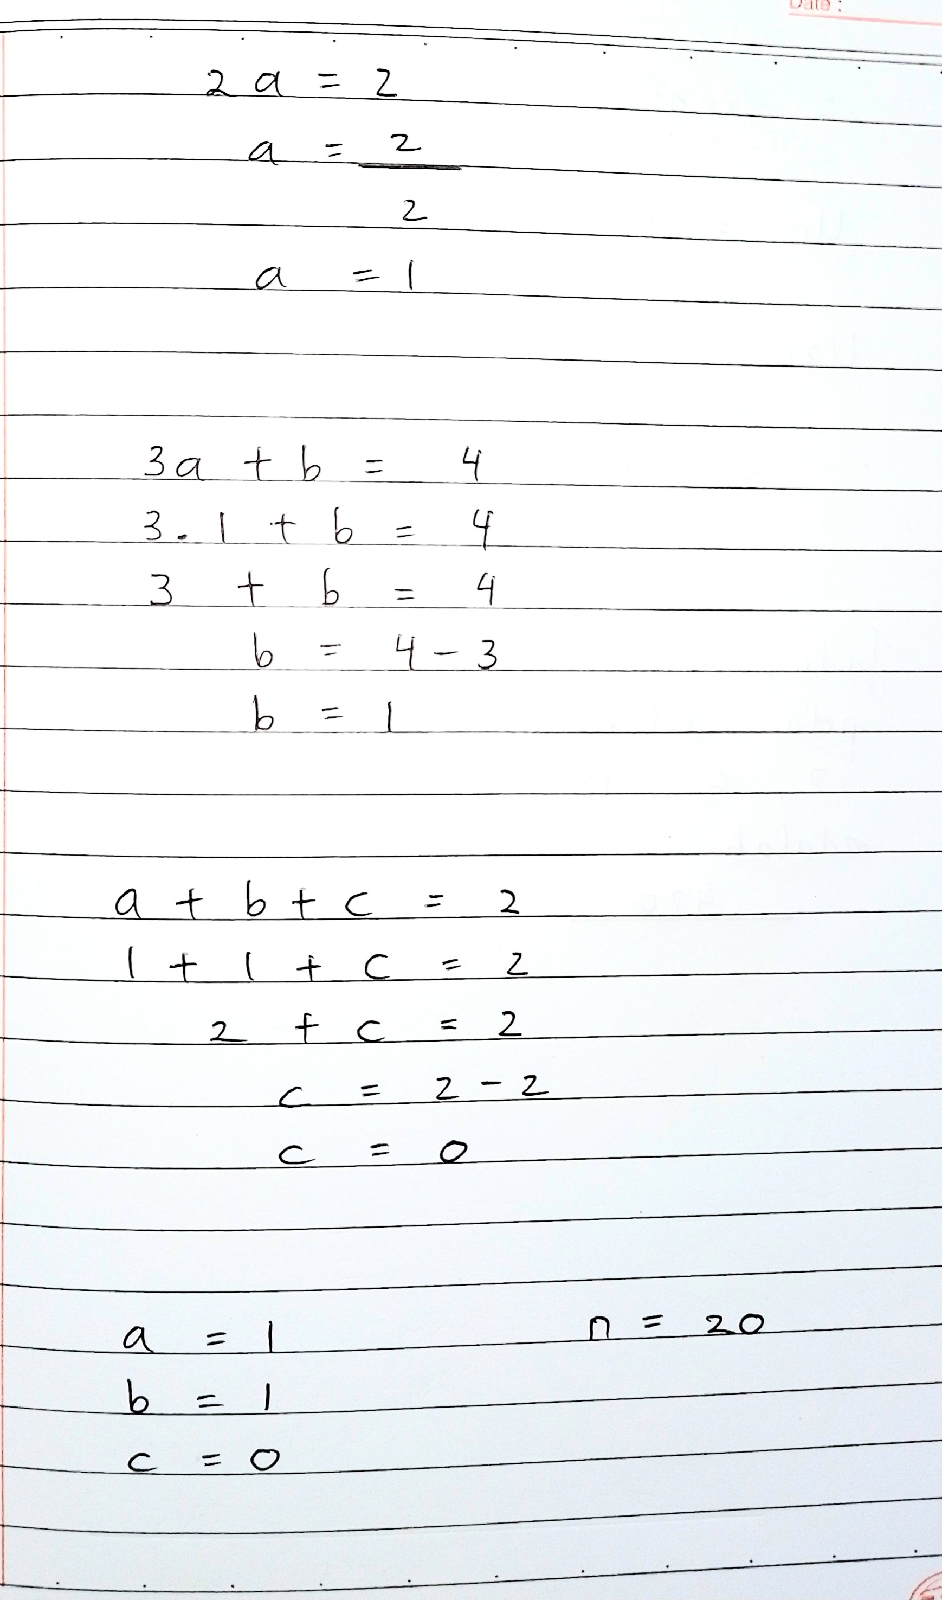 Date :
2a = 2
a = 2
2
a = 1
3a + b = 4
3.1 + b = 4
3 + b = 4
b = 4 - 3
b = 1
a + b + c = 2
1 + 1 + c = 2
2 + c = 2
c = 2 - 2
c = 0
a = 1 n = 20
b = 1
c = 0